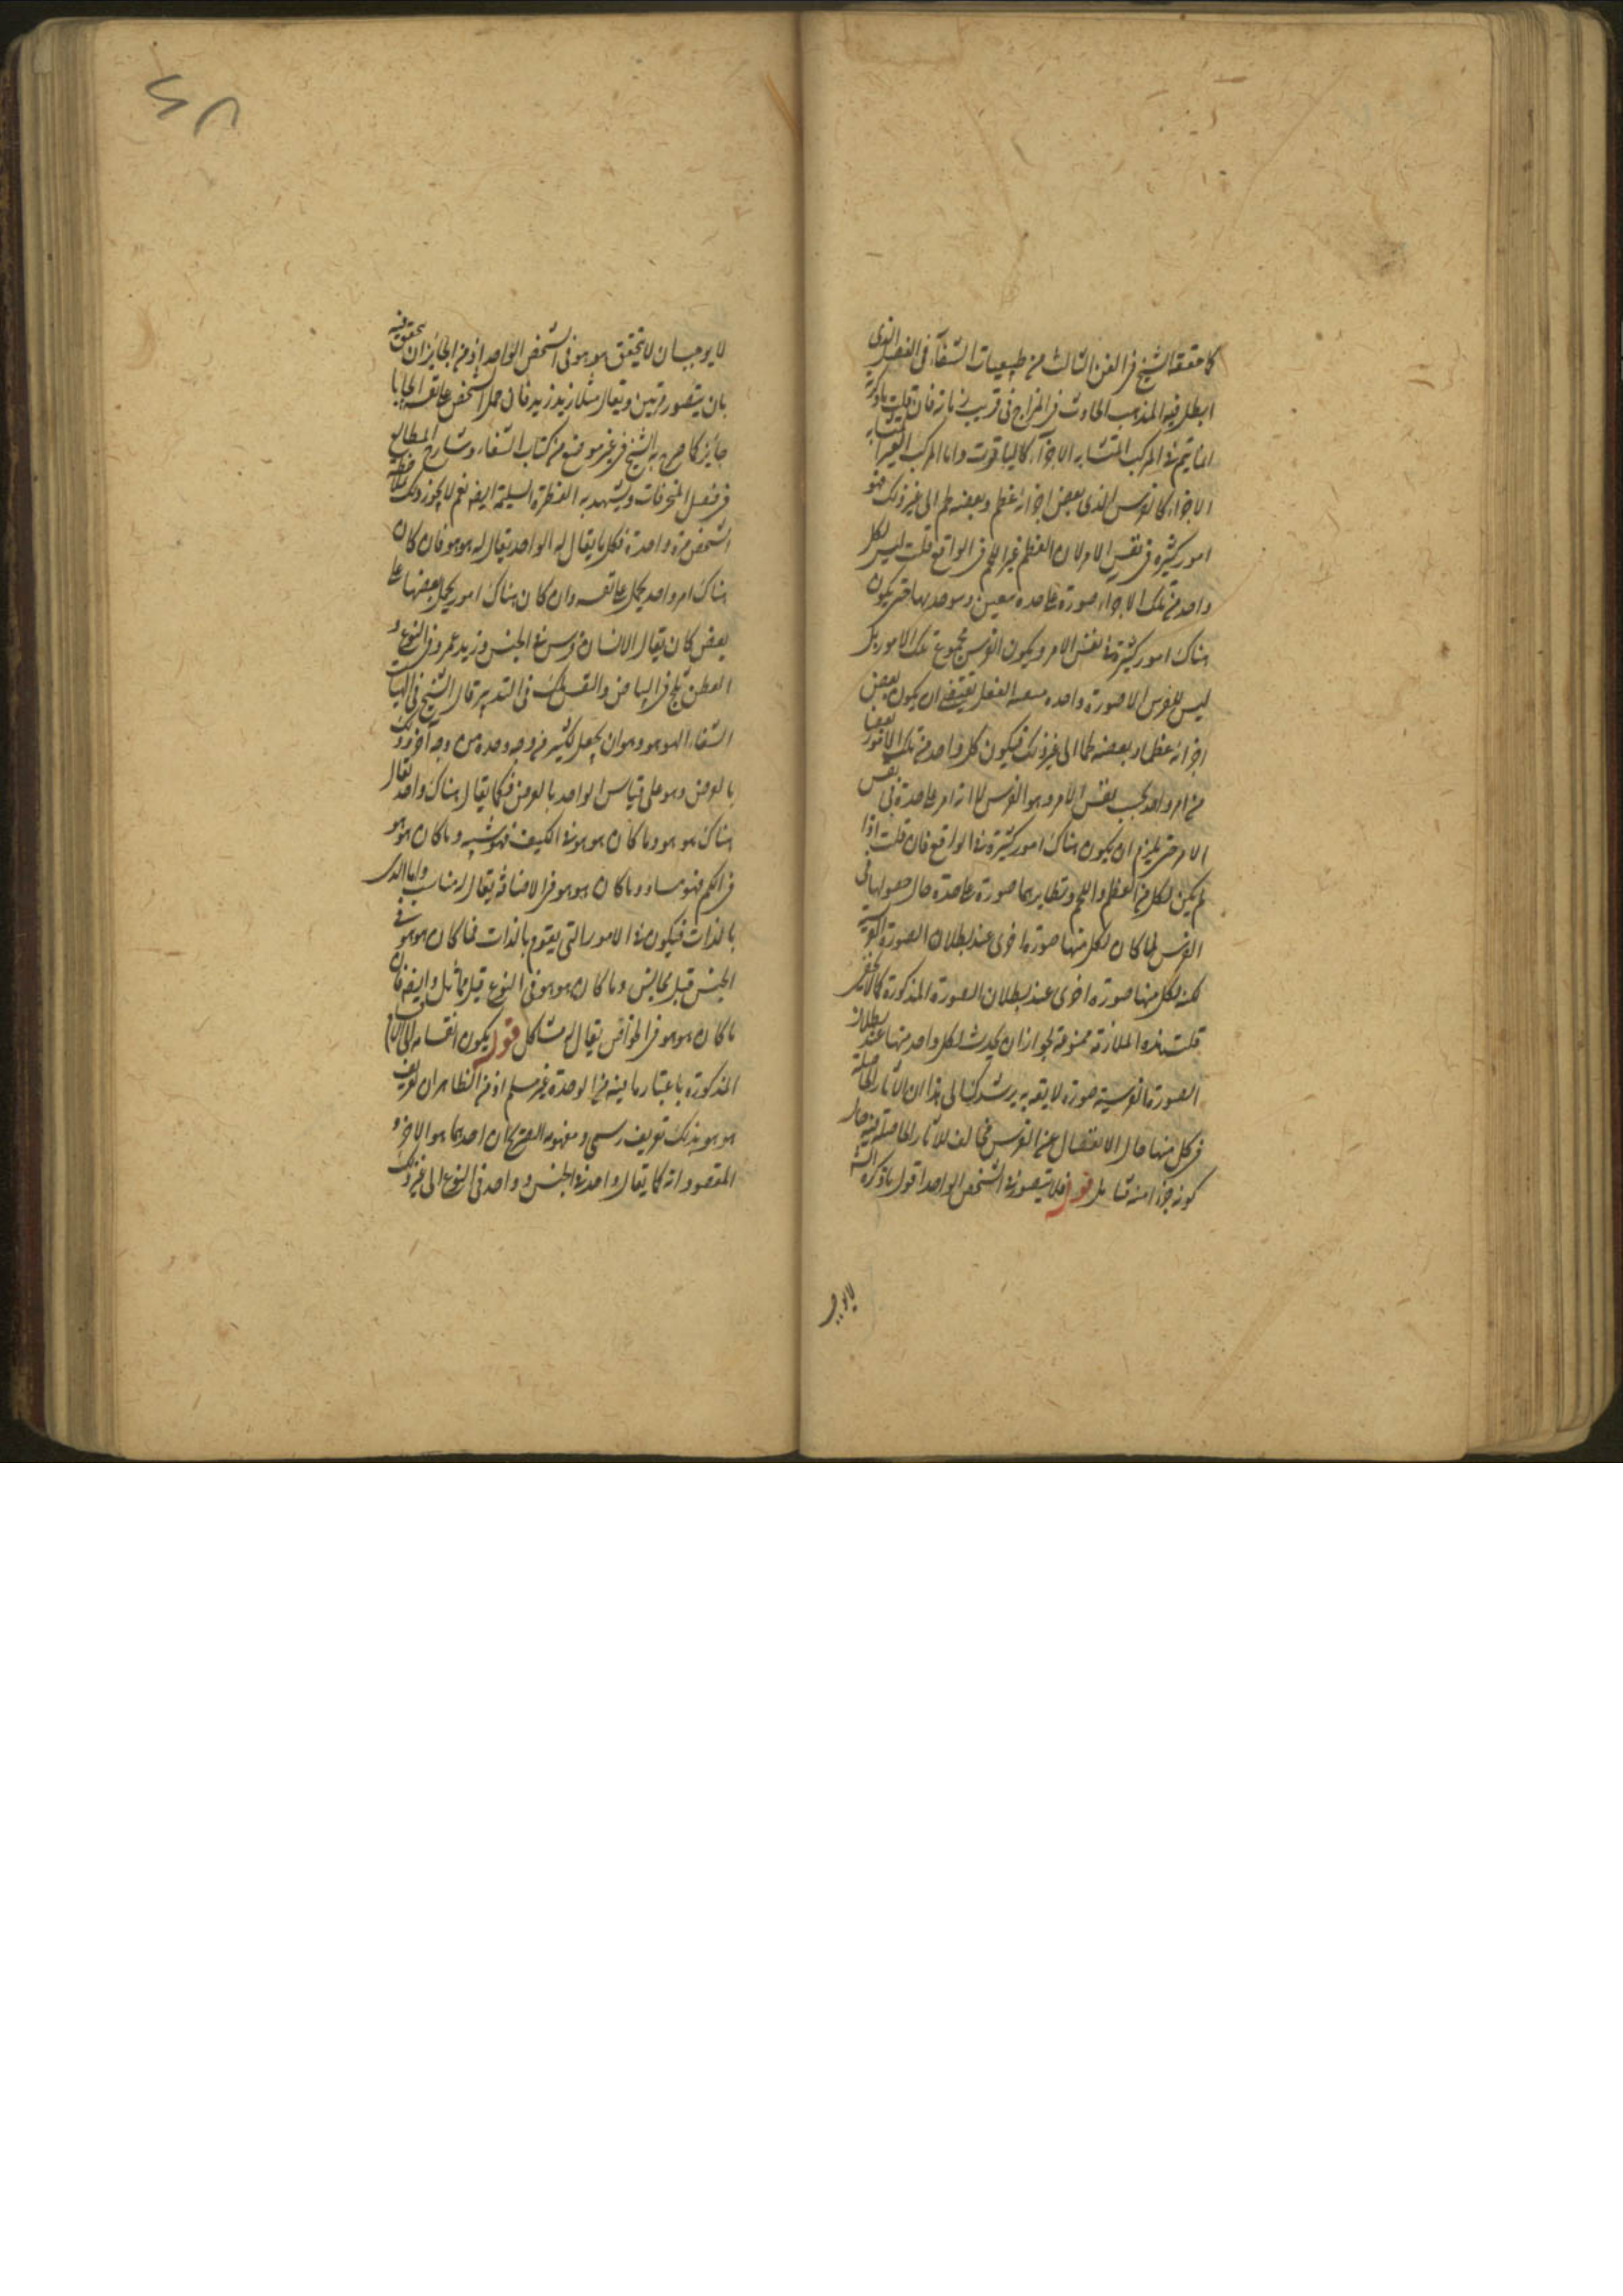 كما حققه الشيخ في الفن الثالث من طبيعيات الشفاء في الفصل الذي
ابطل فيه المذهب الحادث في المزاج في قريب زمانه فان قلت ما ذكرته
انما يتم في المركب المتشابه الاجزاء كالياقوت واما المركب الغير المتشابه
الاجزاء كالفرس الذي بعض اجزائه عظم وبعضه لحم الى غير ذلك فهو
امور كثيرة في نفس الامر لان العظم غير اللحم في الواقع قلت ليس لكل
واحد من تلك الاجزاء صورة عاحدة معين وموجد بها حتى يكون
هناك امور كثيرة في نفس الامر ويكون الفرس مجموع تلك الامور بل
ليس للفرس الا صورة واحدة يقتضي ان يكون بعض
اجزائه عظما وبعضه لحما الى غير ذلك فيكون كل واحد من تلك الامور بعضا
من امر واحد بحسب نفس الامر وهو الفرس لا انه امر عاحدة في نفس
الامر حتى يلزم ان يكون هناك امور كثيرة في الواقع فان قلت اذا
لم يكن لكل من العظم واللحم ونظايرهما صورة عاحدة حال حصولها في
الفرس لما كان لكل منها صورة اخرى عند بطلان الصورة الفرسية
لكنه لكل منها صورة اخرى عند بطلان الصورة المذكورة كما لا يخفى
قلت هذه الملازمة ممنوعة لجواز ان يحدث لكل واحد منها عند بطلان
الصورة الفرسية صورة لا بقه به يرشدك الى هذا ان الآثار الحاصلة
في كل منها حال الانفصال عن الفرس مخالف للآثار الحاصلة فيه حال
كونه جزءا منه تامل قوله فلا يتصور في الشخص الواحد اقول ما ذكره الش
لا يوجب
لا يوجب ان لا يتحقق هو هو في الشخص الواحد اذ من الجايز ان يتحقق فيه
بان يتصور مرتين ويقال مثلا زيد زيد فان حمل الشخص على نفسه ايجابا
جايز كما صرح به الشيخ في غير موضع من كتاب الشفاء وشارح المطالع
في فصل المنحرفات ويشهد به الفطرة السليمة ايضه نعم لا يجوز ذلك
الشخص مرة واحدة فكل ما يقال له الواحد يقال له هو هو فان كان
هناك امر واحد يحمل على نفسه وان كان هناك امور يحمل بعضها على
بعض كان يقال الانسان فرس في الجنس وزيد عمرو في النوع و
القطن ثلج في البياض والنفس ملك في التدبير قال الشيخ في الهيات
الشفاء الهو هو وهو ان يجعل لكثير من وجه وحدة من وجه آخر وذلك
بالعرض وهو على قياس الواحد بالعرض فكما يقال هناك واحد يقال
هناك هو هو وما كان هو هو في الكيف فهو شبيه وما كان هو هو
في الكم فهو مساو وما كان هو هو في الاضافة يقال له مناسب واما الذي
بالذات فيكون في الامور التي يقوم بالذات فما كان هو هو في
الجنس قيل مجانس وما كان هو هو في النوع قيل مماثل وايضه فان
ما كان هو هو في الخواص يقال له مشاكل قوله يكون انقسامه الى الاقسام
المذكورة باعتبار ما فيه من الوحدة غير مسلم اذ من الظاهر ان تعريف
هو هو بذلك تعريف رسمي ومفهومه الصريح ان احدهما هو الآخر و
المقصود انه كما يقال واحد في الجنس وواحد في النوع الى غير ذلك